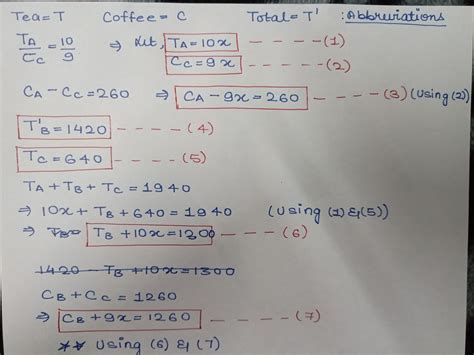 Tea=T Coffee=C Total=T' :Abbreviations
T_A/C_C = 10/9 ⇒ Let, T_A=10x ----(1)
C_C=9x ----(2)
C_A-C_C=260 ⇒ C_A-9x=260 ----(3) (Using(2))
T'_B=1420 ----(4)
T_C=640 ----(5)
T_A+T_B+T_C=1940
⇒ 10x+T_B+640=1940 (Using (1)&(5))
⇒ T_B+10x=1300 ----(6)
1420-T_B+10x=1300
C_B+C_C=1260
⇒ C_B+9x=1260 ----(7)
** Using (6) & (7)